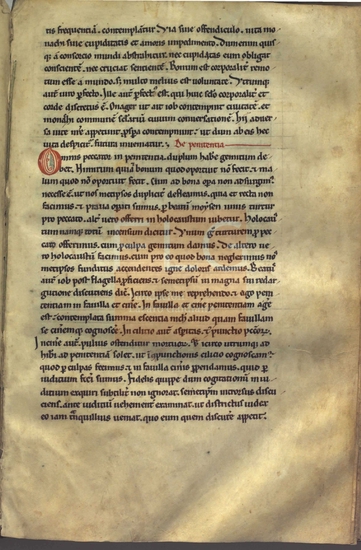 tis frequentiā. contemplātur. Via sine offendiculo. uita mo
nachi sine cupiditatis et amoris impedimento. Dum enim quis
q; a consortio mundi abstrahitur. nec cupiditas eum obligat
consentiens. nec cruciat sentiens. Bonum est corporaliter remo
tum esse a mundo. sed multo melius est uoluntate. Vtrumque
autē uero perfectū. Ille autē perfectus est. qui huic sclo et corporaliter et
corde discretus est. Onager ut ait iob contempnit ciuitatē. et
monachi communē seculariū ciuium conuersationē. Hii aduer
sa uite nre appetunt. prospera contempnunt. ut dum ab eis hec
uita despicitur. futura inueniatur. De penitentia
Omnis peccator in penitentia duplum habere gemitum de
bet. Nimirum quia et bonum quod oportuit non fecit. et ma
lum quod non oportuit fecit. Cum ad bona opera non assurgim
necesse est ut nos metipsos dupliciter defleamus. quia et recta non
facimus. et praua operati sumus. per beatū moysen unus turtur
pro peccato. alter uero offerri in holocaustum iubetur. Holocau
stum namque totum incensum dicitur. Vnum ergo turturem pro pec
cato offerimus. cum pro culpa gemitum damus. De altero ue
ro holocaustū facimus. cum pro eo quod bona negleximus nos
metipsos funditus accendentes igne doloris ardemus. Beatus
autē iob post flagella proficiens. et semetipsū in magna sui redar
gutione discutiens dicit. Idcirco ipse me reprehendo. et ago peni
tentiam in fauilla et cinere. In fauilla et cinere penitentiam agere
est. contemplata summa essentia nichil aliud quam fauillam
se cineremque cognoscere. In cilicio autē asperitas. et punctio peccatorū.
In cinere autē. puluis ostenditur mortuorū. Et idcirco utrumque ad
hiberi ad penitentiā solet. ut in punctione cilicii cognoscamus
quod per culpas fecimus. et in fauilla cineris perpendamus. quid per
iudicium facti sumus. Fidelis quippe dum cogitationum in iu
dicium exquiri subtiliter non ignorat. semetipsum introrsus discu
ciens. ante iudiciū uehementer examinat. ut districtus iudex
eo iam tranquillius ueniat. quo eum quem discutere appetit.